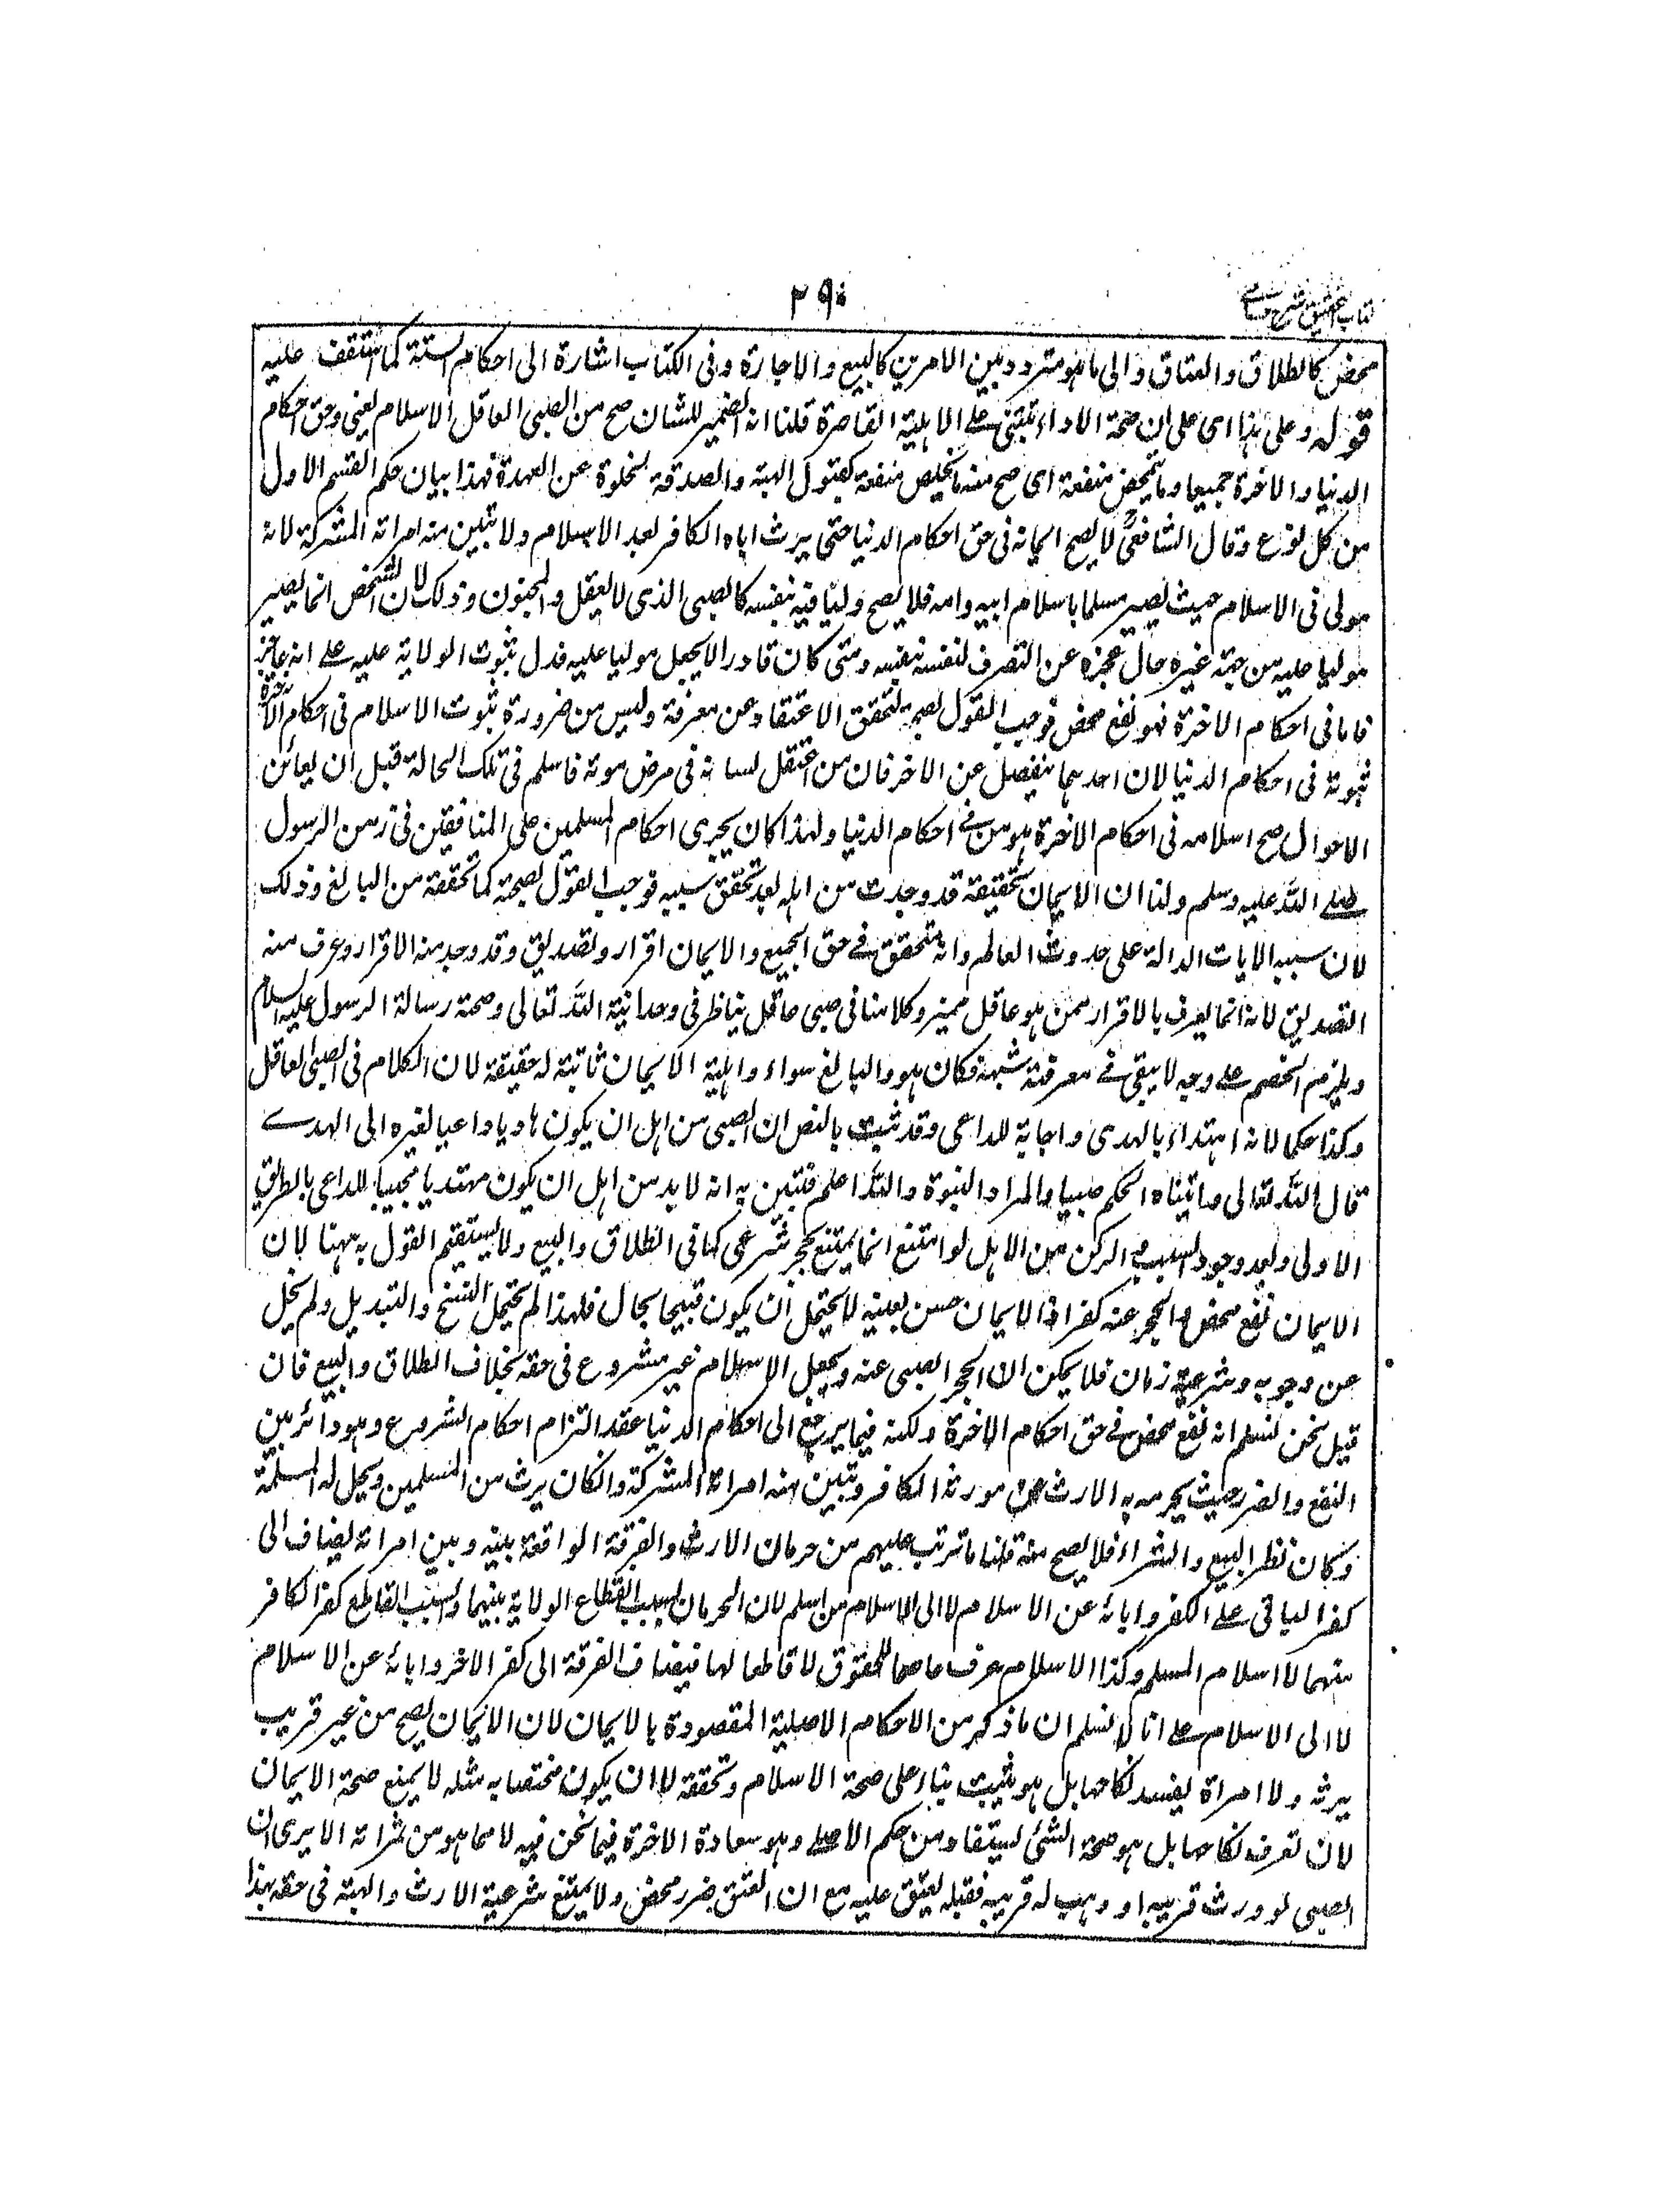 كتاب التحقيق شرح حسامي
٢٩٠
محض كالطلاق والعتاق والى ما هو متردد بين الامرين كالبيع والاجارة وفى الكتاب اشارة الى احكام الستة كما ستقف عليه
قوله وعلى هذا اى على ان صحة الاداء تبتنى على الاهلية القاصرة قلنا انه الضمير للشان صح من الصبى العاقل الاسلام يعنى وحق احكام
الدنيا والاخرة جميعا وما يتمحض منفعة اى صح منه ما يخلص منفعة كقبول الهبة والصدقة لخلوة عن العهدة فهذا بيان حكم القسم الاول
من كل نوع وقال الشافعىؒ لا يصح ايمانه فى حق احكام الدنيا حتى يرث اباه الكافر بعد الاسلام ولا تبين منه امراته المشركة لانه
مولى فى الاسلام حيث يصير مسلما باسلام ابيه وامه فلا يصح وليا فيه بنفسه كالصبى الذى لا يعقل والمجنون وذلك لان الشخص انما يصير
موليا عليه من جهة غيره حال عجزه عن التصرف لنفسه بنفسه ومتى كان قادرا لا يجعل موليا عليه فدل ثبوت الولاية عليه على انه عاجز
فاما فى احكام الاخرة فهو نفع محض فوجب القول بصحته لتحقق الاعتقاد عن معرفة وليس من ضرورة ثبوت الاسلام فى احكام الاخرة
ثبوته فى احكام الدنيا لان احدهما ينفصل عن الاخر فان من اعتقل لسانه فى مرض موته فاسلم فى تلك الحالة قبل ان يعاين
الاحوال صح اسلامه فى احكام الاخرة هو من فى احكام الدنيا ولهذا كان يجرى احكام المسلمين على المنافقين فى زمن الرسول
صلى الله عليه وسلم ولنا ان الايمان بحقيقة قد وجدت من اهله بعد تحقق سببه فوجب القول بصحته كما تحققه من البالغ وذلك
لان سببه الايات الدالة على حدوث العالم وانه متحقق فى حق الجميع والايمان اقرار وتصديق وقد وجد منه الاقرار وعرف منه
التصديق لانه انما يعرف بالاقرار ممن هو عاقل مميز وكلامنا فى صبى عاقل يناظر فى وحدانية الله تعالى وصحة رسالة الرسول عليه السلام
ويلزم الخصم على وجه لا يبقى فى معرفته شبهة فكان هو والبالغ سواء واهلية الايمان ثابتة له حقيقة لان الكلام فى الصبى العاقل
وكذا حكما لانه اهتداء بالهدى واجابة للداعى وقد ثبت بالنص ان الصبى من اهل ان يكون هاديا داعيا لغيره الى الهدى
قال الله تعالى واتيناه الحكم صبيا والمراد النبوة والله اعلم فتبين به انه لا بد من اهل ان يكون مهتديا مجيبا للداعى بالطريق
الاولى وبعد وجود السبب الركن من الاهل لو امتنع انما يمتنع بحجر شرعى كما فى الطلاق والبيع ولا يستقيم القول به ههنا لان
الايمان نفع محض والحجر عنه كفر اذ الايمان حسن بعينه لا يحتمل ان يكون قبيحا بحال فلهذا لم يحتمل النسخ والتبديل ولم يخل
عن وجوبه وشرعية زمان فلا يمكن ان الحجر الصبى عنه ويجعل الاسلام غير مشروع فى حقه بخلاف الطلاق والبيع فان
قيل نحن نسلم انه نفع محض فى حق احكام الاخرة ولكنه فيما يرجع الى احكام الدنيا عقد التزام احكام الشروع وهو دائر بين
النفع والضرر حيث يحرمه به الارث عن مورثه الكافر وتبين منه امراته المشركة وان كان يرث من المسلمين ويحل له المسلمة
وكان نظر البيع والشراء فلا يصح منه قلنا ما ترتب عليهم من حرمان الارث والفرقة الواقعة بينه وبين امراته يضاف الى
كفر الباقى على الكفر وابائه عن الاسلام لا الى الاسلام من اسلم لان الحرمان بسبب انقطاع الولاية بينهما والسبب القاطع كفر الكافر
منهما لا اسلام المسلم وكذا الاسلام عرف عاصما للحقوق لا قاطعا لها فيضاف الفرقة الى كفر الاخر وابائه عن الاسلام
لا الى الاسلام على انا لا نسلم ان ما ذكر من الاحكام الاصلية المقصودة بالايمان لان الايمان يصح من غير قريب
يرثه ولا امراة يفسد نكاحها بل هو يثبت بناء على صحة الاسلام وتحققه لا ان يكون مختصا به مثله لا يمنع صحة الايمان
لان تعرف نكاحها بل هو صحة الشئ يستفاد من حكم الاصلى وهو سعادة الاخرة فيما نحن فيه لا مما هو من ثمراته الا يرى ان
الصبى لو ورث قريبه او وهب له قريبه فقبله يعتق عليه مع ان العتق ضرر محض ولا يمتنع شرعية الارث والهبة فى حقه بهذا